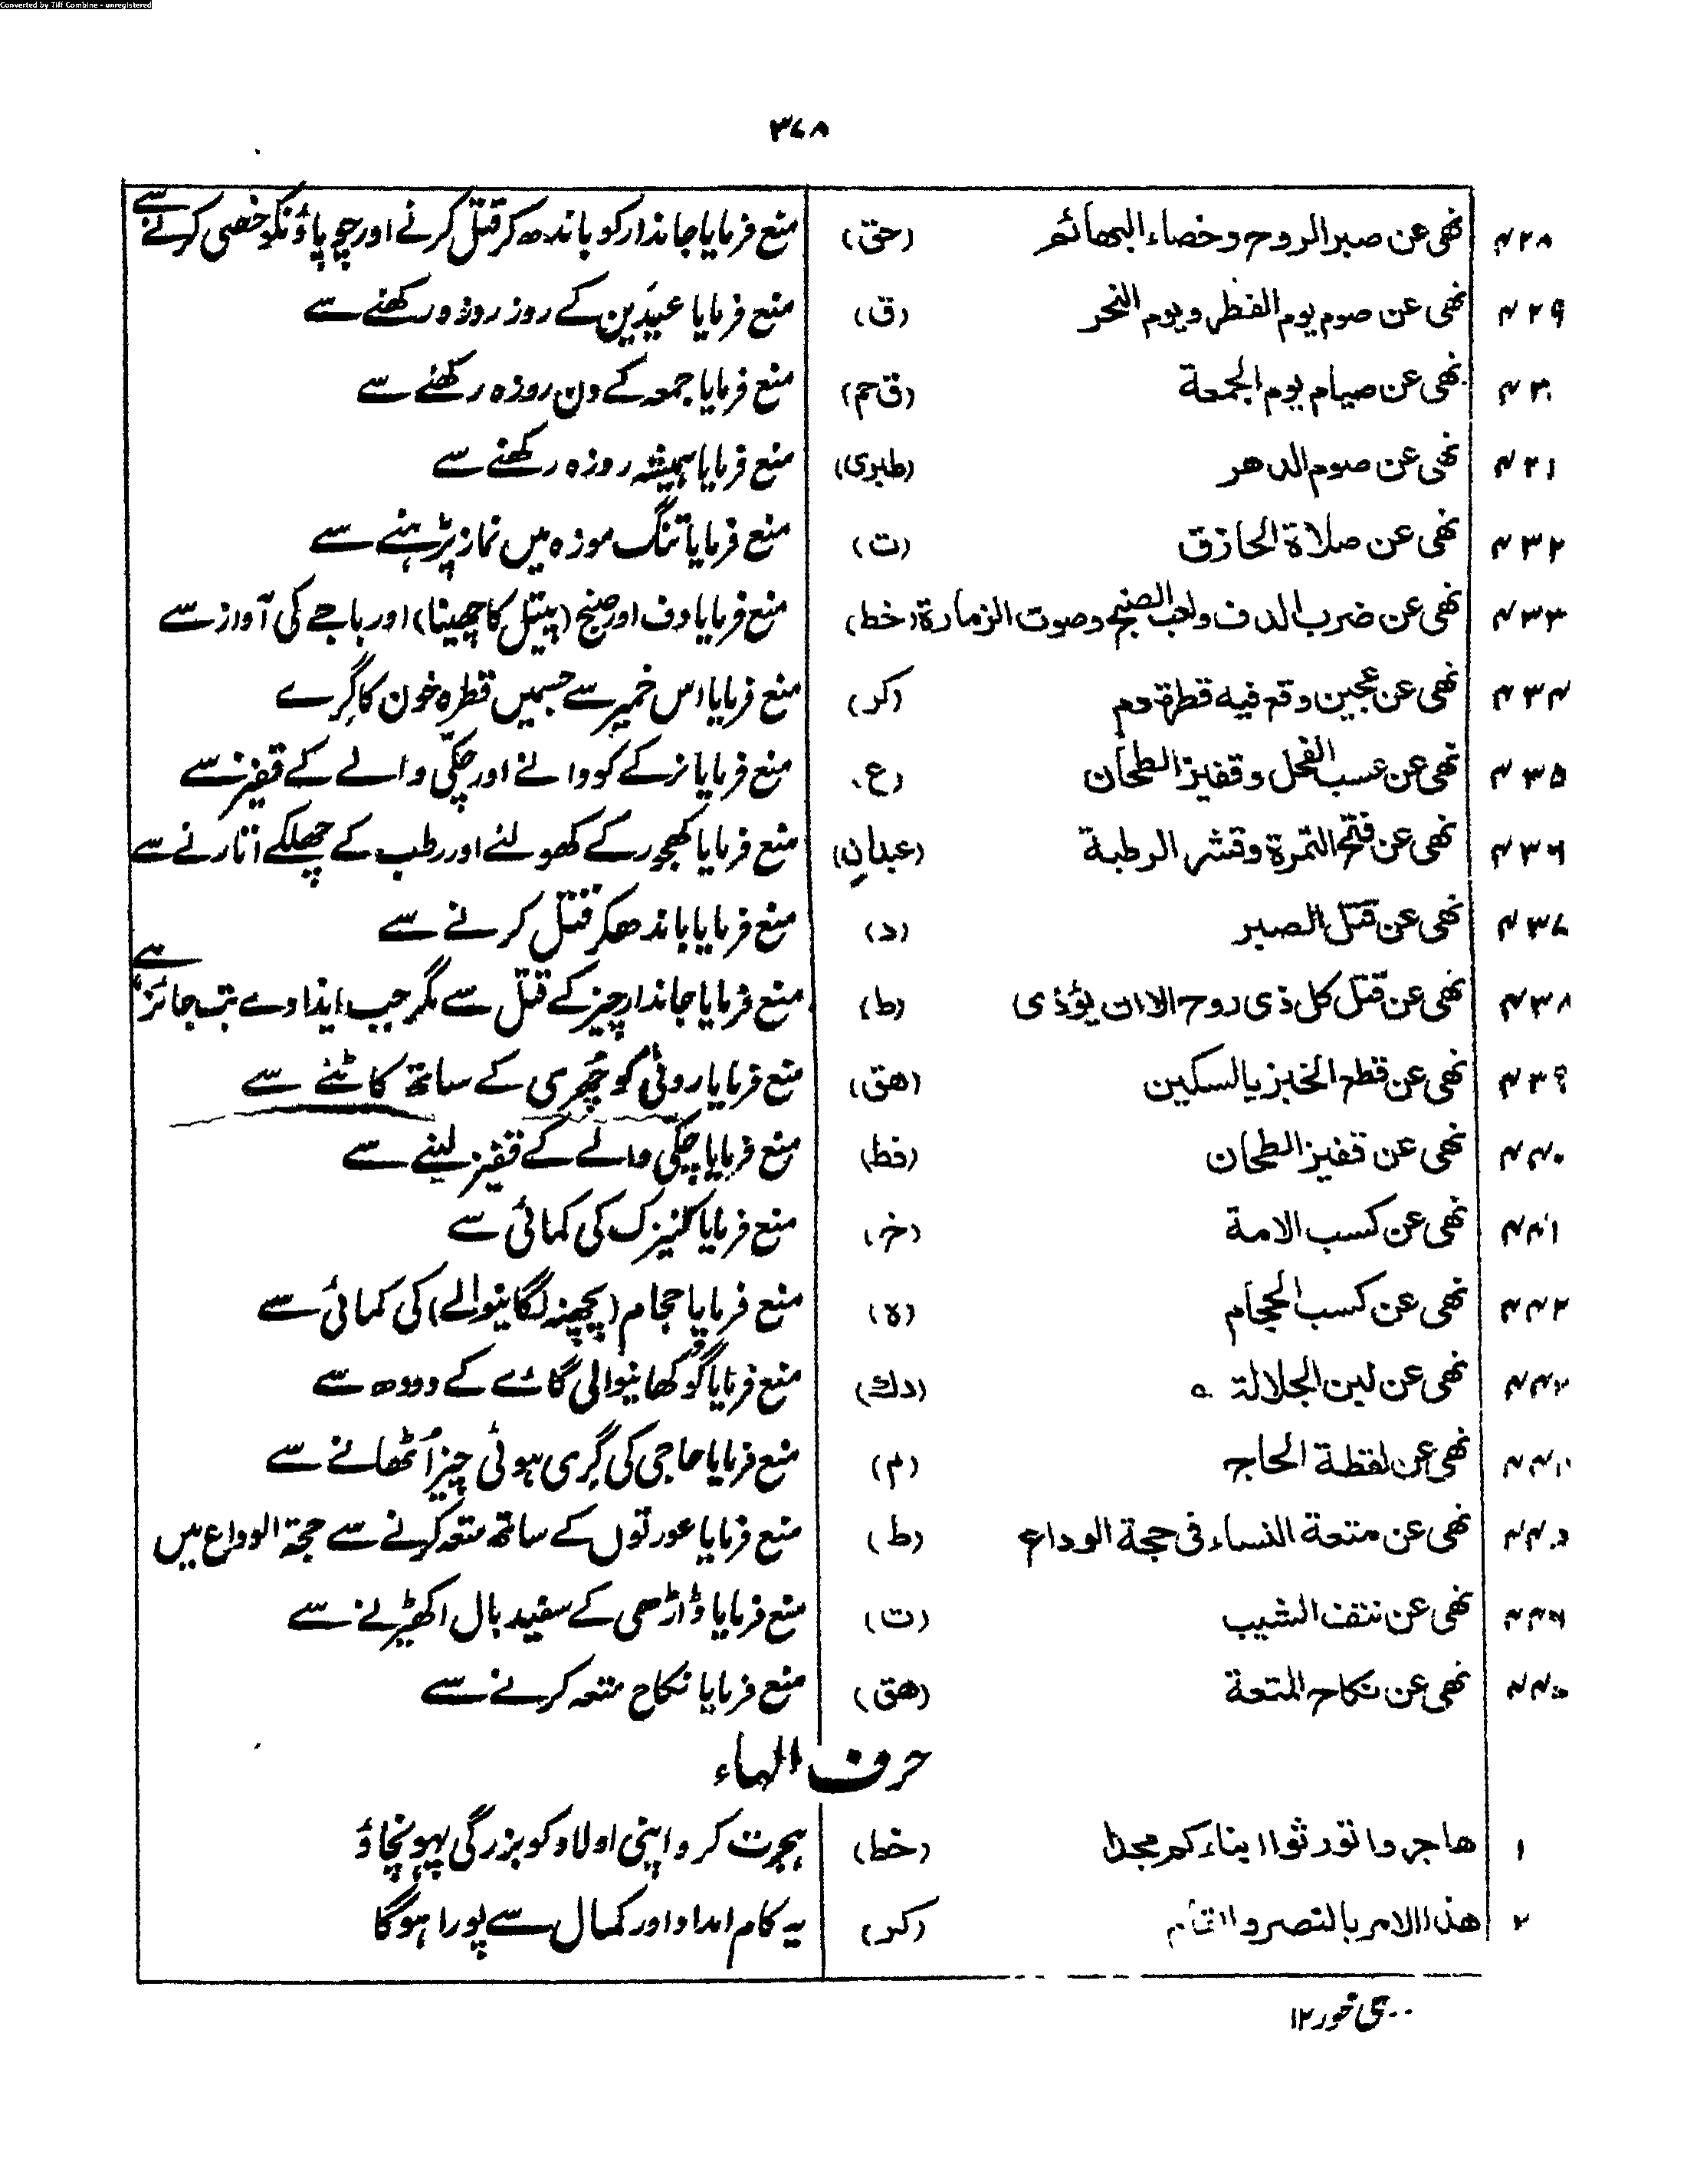 Converted by Tiff Combine - unregistered
۳۷۸
۴۲۸ نهى عن صبر الروح وخصاء البهائم (حق) منع فرمایا جاندار کو باندھ کر قتل کرنے اور چوپاؤنکو خصی کرنے سے
۴۲۹ نهى عن صوم يوم الفطر ويوم النحر (ق) منع فرمایا عیدَین کے روز روزہ رکھنے سے
۴۳۰ نهى عن صيام يوم الجمعة (ق حم) منع فرمایا جمعہ کے دن روزہ رکھنے سے
۴۳۱ نهى عن صوم الدهر (طبری) منع فرمایا ہمیشہ روزہ رکھنے سے
۴۳۲ نهى عن صلاة الحازق (ت) منع فرمایا تنگ موزہ میں نماز پڑہنے سے
۴۳۳ نهى عن ضرب الدف ولعب الصنج وصوت الزمارة (خط) منع فرمایا دف اور صنج (پیتل کا چھینا) اور باجے کی آواز سے
۴۳۴ نهى عن عجين وقع فيه قطرة دم (کر) منع فرمایا اس خمیر سے جسمیں قطرہ خون کا گِرے
۴۳۵ نهى عن عسب الفحل وقفيز الطحان (ع) منع فرمایا نر کے کودانے اور چکّی والے کے قفیز سے
۴۳۶ نهى عن فتح التمرة وقشر الرطبة (عبدان) منع فرمایا کھجور کے کھولنے اور رطب کے چھلکے اتارنے سے
۴۳۷ نهى عن قتل الصبر (د) منع فرمایا باندھکر قتل کرنے سے
۴۳۸ نهى عن قتل كل ذى روح الا ان يؤذى (ط) منع فرمایا جاندار چیز کے قتل سے مگر جب ایذا دے تب جائز ہے
۴۳۹ نهى عن قطع الخبز بالسكين (هق) منع فرمایا روٹی کو چُھری کے ساتھ کاٹنے سے
۴۴۰ نهى عن قفيز الطحان (قط) منع فرمایا چکّی والے کے قفیز لینے سے
۴۴۱ نهى عن كسب الامة (خ) منع فرمایا کنیزک کی کمائی سے
۴۴۲ نهى عن كسب الحجام (ہ) منع فرمایا حجام (پچھنہ لگانیوالے) کی کمائی سے
۴۴۳ نهى عن لبن الجلالة (دك) منع فرمایا گو کھانیوالی گائے کے دودھ سے
۴۴۴ نهى عن لقطة الحاج (م) منع فرمایا حاجی کی گِری ہوئی چیز اُٹھانے سے
۴۴۵ نهى عن متعة النساء فى حجة الوداع (ط) منع فرمایا عورتوں کے ساتھ متعہ کرنے سے حجۃ الوداع میں
۴۴۶ نهى عن نتف الشيب (ت) منع فرمایا ڈاڑھی کے سفید بال اکھیڑنے سے
۴۴۷ نهى عن نكاح المتعة (هق) منع فرمایا نکاح متعہ کرنے سے
حرف الہاء
۱ هاجروا تورثوا ابناءكم مجدا (خط) ہجرت کرو اپنی اولاد کو بزرگی پہونچاؤ
۲ هذا الامر بالنصر و (کر) یہ کام امداد اور کمال سے پورا ہوگا
خور ۱۲